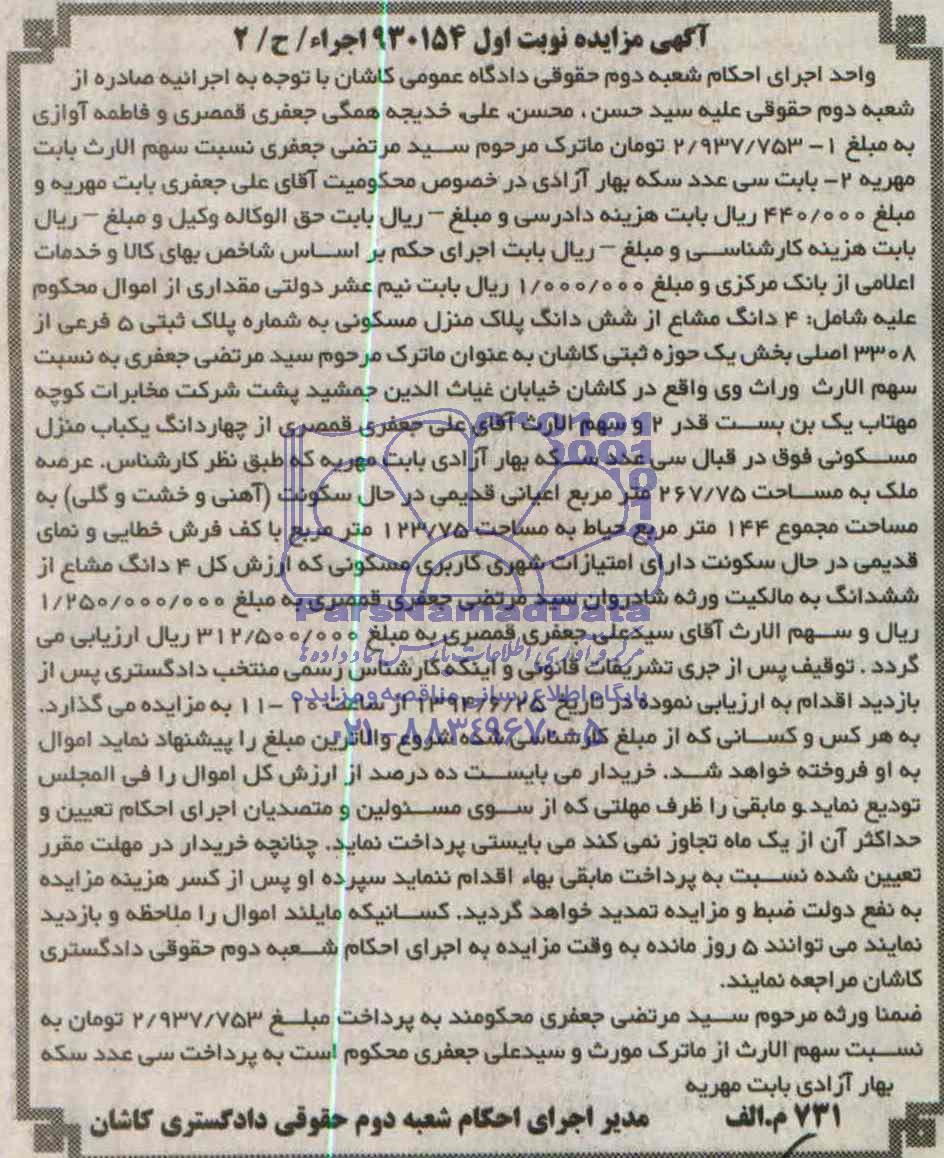 آگهی مزایده نوبت اول ۹۳۰۱۵۴ اجراء/ ح/ ۲
واحد اجرای احکام شعبه دوم حقوقی دادگاه عمومی کاشان با توجه به اجرائیه صادره از
شعبه دوم حقوقی علیه سید حسن ، محسن، علی، خدیجه همگی جعفری قمصری و فاطمه آوازی
به مبلغ ۱- ۲/۹۳۷/۷۵۳ تومان ماترک مرحوم سید مرتضی جعفری نسبت سهم الارث بابت
مهریه ۲- بابت سی عدد سکه بهار آزادی در خصوص محکومیت آقای علی جعفری بابت مهریه و
مبلغ ۴۴۰/۰۰۰ ریال بابت هزینه دادرسی و مبلغ – ریال بابت حق الوکاله وکیل و مبلغ – ریال
بابت هزینه کارشناسی و مبلغ – ریال بابت اجرای حکم بر اساس شاخص بهای کالا و خدمات
اعلامی از بانک مرکزی و مبلغ ۱/۰۰۰/۰۰۰ ریال بابت نیم عشر دولتی مقداری از اموال محکوم
علیه شامل: ۴ دانگ مشاع از شش دانگ پلاک منزل مسکونی به شماره پلاک ثبتی ۵ فرعی از
۳۳۰۸ اصلی بخش یک حوزه ثبتی کاشان به عنوان ماترک مرحوم سید مرتضی جعفری به نسبت
سهم الارث وراث وی واقع در کاشان خیابان غیاث الدین جمشید پشت شرکت مخابرات کوچه
مهتاب یک بن بست قدر ۲ و سهم الارث آقای علی جعفری قمصری از چهاردانگ یکباب منزل
مسکونی فوق در قبال سی عدد سکه بهار آزادی بابت مهریه که طبق نظر کارشناس. عرصه
ملک به مساحت ۲۶۷/۷۵ متر مربع اعیانی قدیمی در حال سکونت (آهنی و خشت و گلی) به
مساحت مجموع ۱۴۴ متر مربع حیاط به مساحت ۱۲۳/۷۵ متر مربع با کف فرش خطایی و نمای
قدیمی در حال سکونت دارای امتیازات شهری کاربری مسکونی که ارزش کل ۴ دانگ مشاع از
ششدانگ به مالکیت ورثه شادروان سید مرتضی جعفری قمصری به مبلغ ۱/۲۵۰/۰۰۰/۰۰۰
ParsNamadData
ریال و سهم الارث آقای سیدعلی جعفری قمصری به مبلغ ۳۱۲/۵۰۰/۰۰۰ ریال ارزیابی می
گردد . توقیف پس از جری تشریفات قانونی و اینکه کارشناس رسمی منتخب دادگستری پس از
پایگاه اطلاع رسانی مناقصه و مزایده
بازدید اقدام به ارزیابی نموده در تاریخ ۱۳۹۴/۶/۲۵ از ساعت ۱۰ -۱۱ به مزایده می گذارد.
۰۲۱-۸۸۳۴۹۶۷۰-۵
به هر کس و کسانی که از مبلغ کارشناسی شده شروع والاترین مبلغ را پیشنهاد نماید اموال
به او فروخته خواهد شد. خریدار می بایست ده درصد از ارزش کل اموال را فی المجلس
تودیع نماید.و مابقی را ظرف مهلتی که از سوی مسئولین و متصدیان اجرای احکام تعیین و
حداکثر آن از یک ماه تجاوز نمی کند می بایستی پرداخت نماید. چنانچه خریدار در مهلت مقرر
تعیین شده نسبت به پرداخت مابقی بهاء اقدام ننماید سپرده او پس از کسر هزینه مزایده
به نفع دولت ضبط و مزایده تمدید خواهد گردید. کسانیکه مایلند اموال را ملاحظه و بازدید
نمایند می توانند ۵ روز مانده به وقت مزایده به اجرای احکام شعبه دوم حقوقی دادگستری
کاشان مراجعه نمایند.
ضمنا ورثه مرحوم سید مرتضی جعفری محکومند به پرداخت مبلغ ۲/۹۳۷/۷۵۳ تومان به
نسبت سهم الارث از ماترک مورث و سیدعلی جعفری محکوم است به پرداخت سی عدد سکه
بهار آزادی بابت مهریه
۷۳۱ م.الف مدیر اجرای احکام شعبه دوم حقوقی دادگستری کاشان